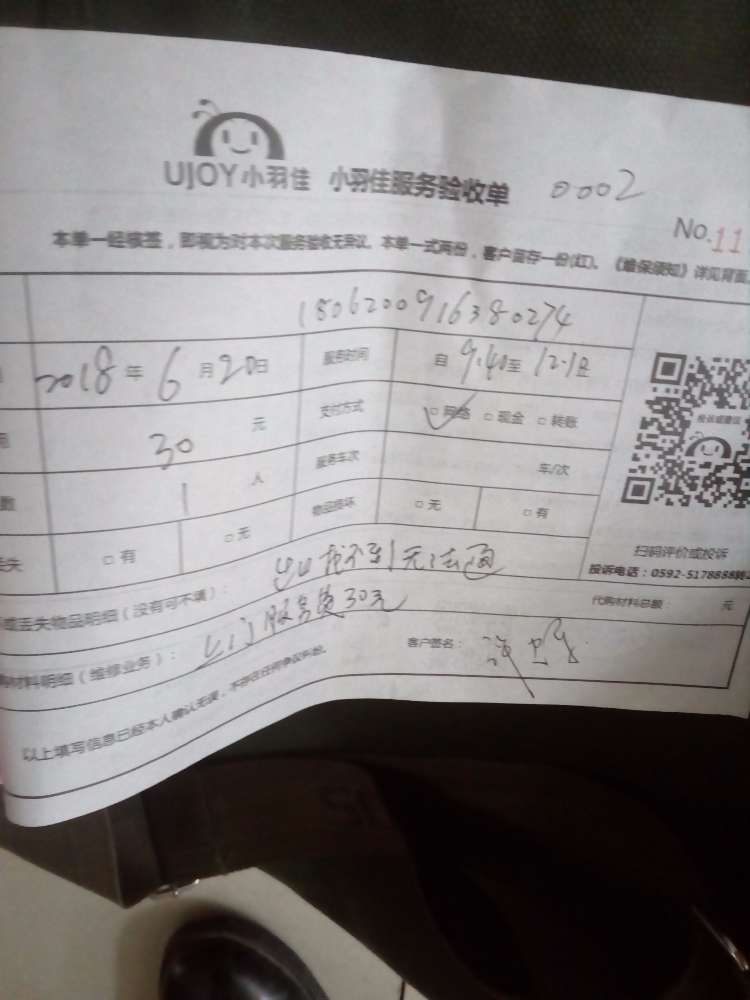 UJOY小羽佳 小羽佳服务验收单 0002
No.11
本单一经核签，即视为对本次服务验收无异议。本单一式两份，客户留存一份(红)。《维保须知》详见背面
1806200916380274
2018年6月20日 服务时间 自9:40至12:10
30元 支付方式 □网络 □现金 □转账
数 1人 服务车次 车/次
丢失 □有 □无 物品损坏 □无 □有
扫码评价或投诉
投诉电话：0592-5178888转
或丢失物品明细（没有可不填）： 找不到 无法通
代购材料总额： 元
材料明细（维修业务）： 上门服务费30元
客户签名：
以上填写信息已经本人确认无误，不存在任何争议纠纷。